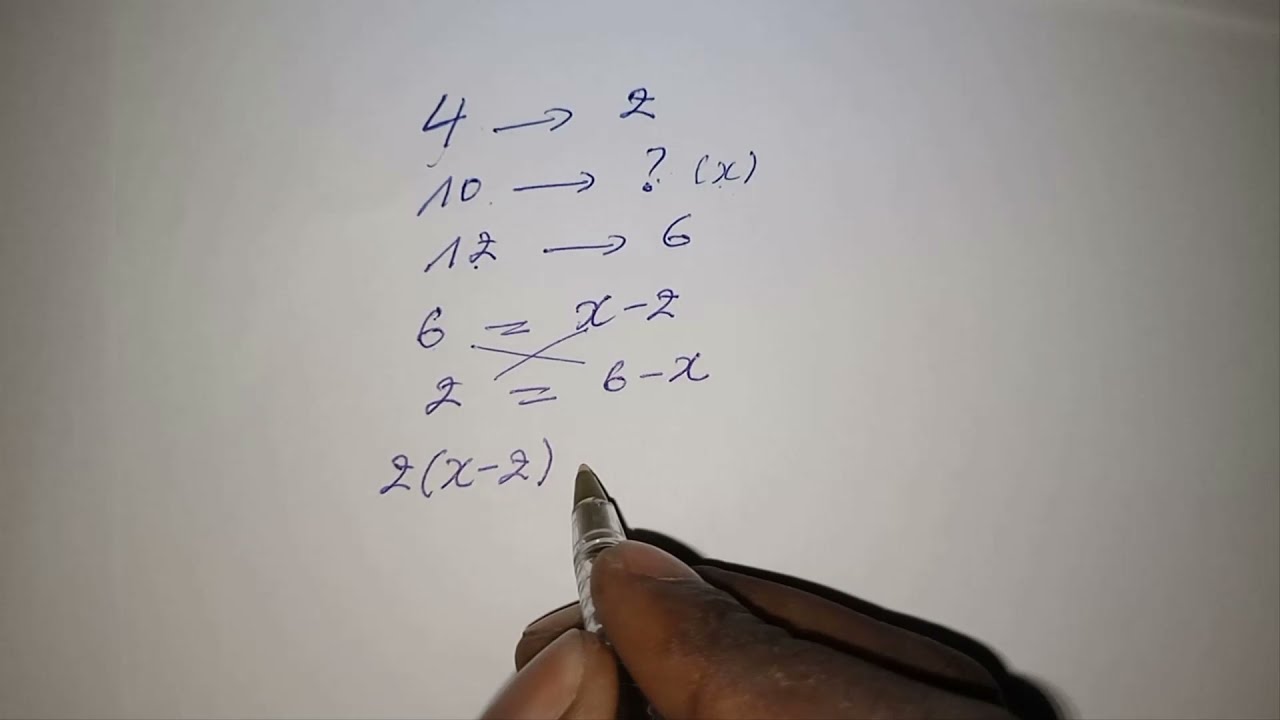 4 → 2
10 → ? (x)
12 → 6
6 = x-2
2 = 6-x
2(x-2)